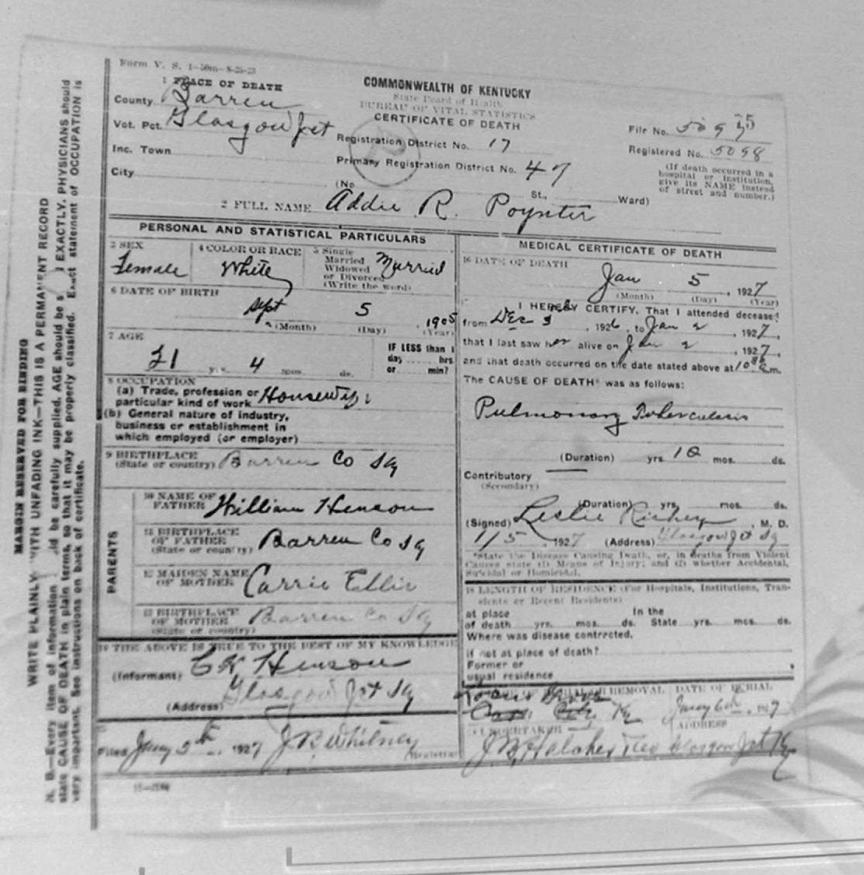 Form V. S. 1-50m-8-25-23
1 PLACE OF DEATH
County Barren
Vot. Pct. Glasgow Jct
Inc. Town
City
COMMONWEALTH OF KENTUCKY
State Board of Health
BUREAU OF VITAL STATISTICS
CERTIFICATE OF DEATH
Registration District No. 17
Primary Registration District No. 47
(No. St., Ward)
File No.
Registered No. 5098
(If death occurred in a hospital or institution, give its NAME instead of street and number.)
2 FULL NAME Addie R. Poynter
PERSONAL AND STATISTICAL PARTICULARS
3 SEX Female
4 COLOR OR RACE White
5 Single Married Widowed or Divorced (Write the word) Married
6 DATE OF BIRTH
Sept 5 1905
(Month) (Day) (Year)
7 AGE
21 yrs. 4 mos. ds.
IF LESS than 1 day hrs or min?
8 OCCUPATION
(a) Trade, profession or particular kind of work Housewife
(b) General nature of industry, business or establishment in which employed (or employer)
9 BIRTHPLACE
(State or country) Barren Co
PARENTS
10 NAME OF FATHER William Henson
11 BIRTHPLACE OF FATHER (State or country) Barren Co
12 MAIDEN NAME OF MOTHER Carrie Ellis
13 BIRTHPLACE OF MOTHER (State or country) Barren Co
14 THE ABOVE IS TRUE TO THE BEST OF MY KNOWLEDGE
(Informant) Henson
(Address) Glasgow Jct
Filed 1927 Whitney
MEDICAL CERTIFICATE OF DEATH
16 DATE OF DEATH
Jan 5, 1927
(Month) (Day) (Year)
I HEREBY CERTIFY, That I attended deceased
from Dec 3, 1926, to Jan 2, 1927,
that I last saw her alive on Jan 2, 1927,
and that death occurred on the date stated above at m.
The CAUSE OF DEATH* was as follows:
Pulmonary Tuberculosis
(Duration) yrs. 10 mos. ds.
Contributory
(Secondary)
(Duration) yrs. mos. ds.
(Signed) Leslie , M. D.
1/5 1927 (Address) Glasgow Jct
*State the Disease Causing Death, or, in deaths from Violent Causes state (1) Means of Injury; and (2) whether Accidental, Suicidal or Homicidal.
18 LENGTH OF RESIDENCE (For Hospitals, Institutions, Transients or Recent Residents)
at place In the
of death yrs. mos. ds. State yrs. mos. ds.
Where was disease contracted,
if not at place of death?
Former or
usual residence
REMOVAL DATE OF BURIAL
1927
UNDERTAKER ADDRESS
Glasgow Jct Ky
MARGIN RESERVED FOR BINDING
WRITE PLAINLY WITH UNFADING INK—THIS IS A PERMANENT RECORD
N. B.—Every item of information should be carefully supplied. AGE should be EXACTLY. PHYSICIANS should
state CAUSE OF DEATH in plain terms, so that it may be properly classified. Exact statement of OCCUPATION is
very important. See instructions on back of certificate.